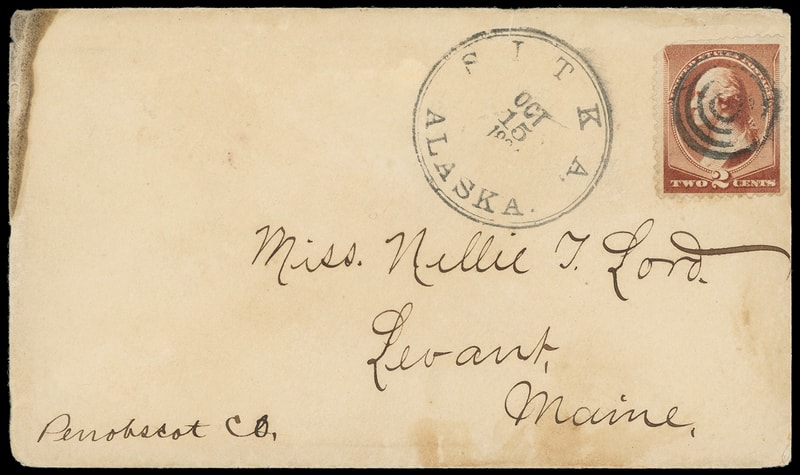 SITKA
ALASKA.
OCT
15
UNITED STATES POSTAGE
TWO 2 CENTS
Miss. Nellie T. Lord.
Levant,
Maine,
Penobscot Co.